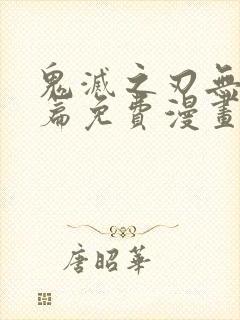 鬼滅之刃無
篇免費漫畫
唐昭華